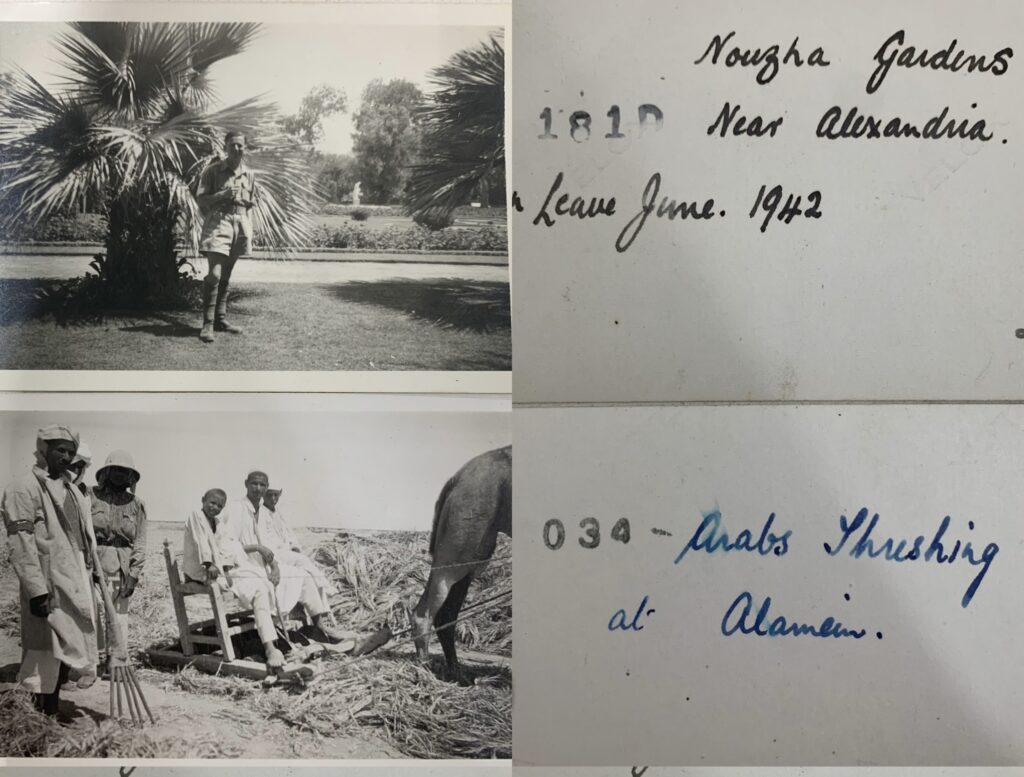 Nouzha Gardens
181D Near Alexandria.
n Leave June. 1942
034 - Arabs Threshing
at Alamein.